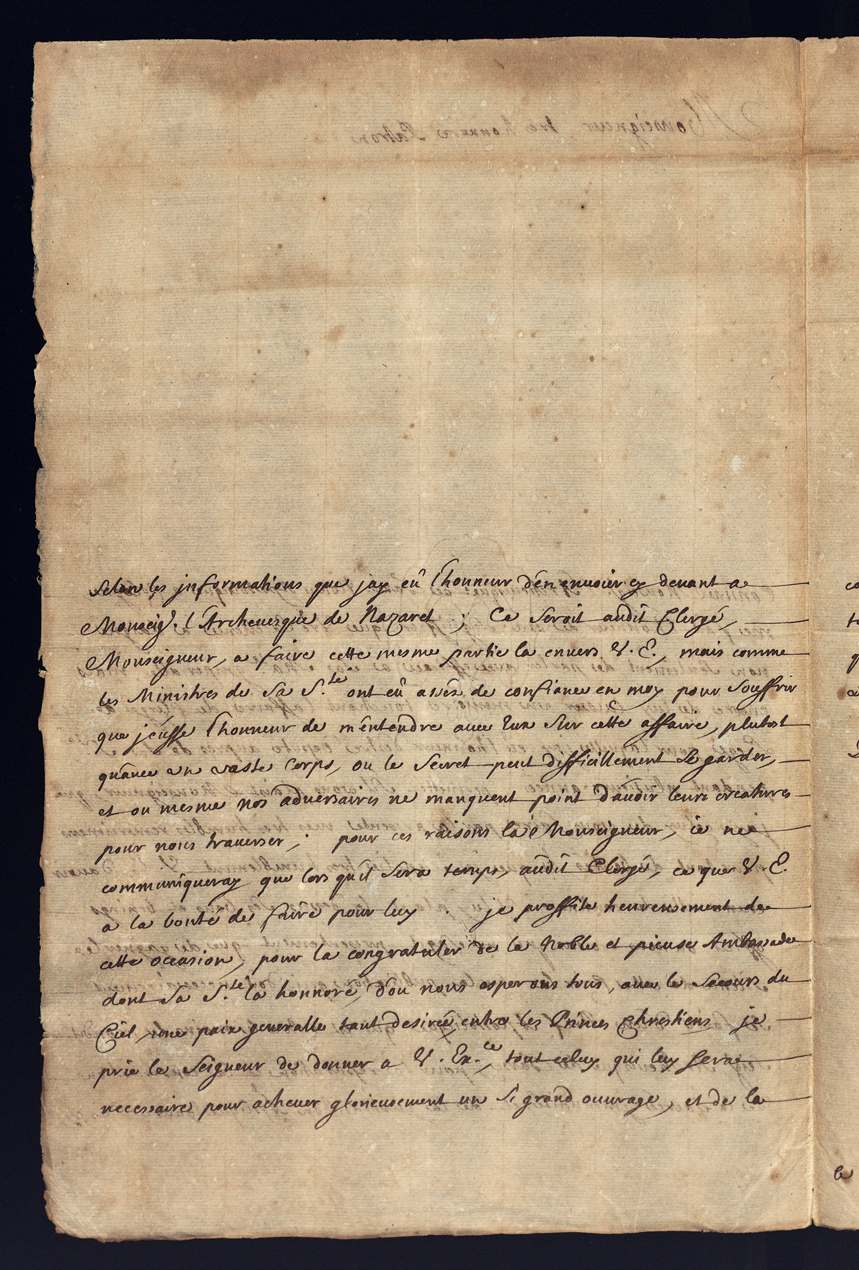 Selon les jnformations que jay eû l'honneur d'en enuoier cy deuant a
Monseigr. l'Archeuesque de Nazaret ; Ce seroit audit Clergé,
Monseigneur, a faire cette mesme partie la enuers V. E., mais comme
les Ministres de Sa S.te ont eû assés de confiance en moy pour souffrir
que j'eusse l'honneur de m'entendre auec Eux sur cette affaire, plutost
qu'auec un vaste corps, ou le secret peut difficillement se garder,
et ou mesme nos aduersaires ne manquent point d'auoir leurs creatures
pour nous trauerser ; pour ces raisons la Monseigneur, ie ne
communiqueray que lors qu'il sera temps, audit Clergé, ce que V. E.
a la bonté de faire pour luy . je proffite heureusement de
cette occasion, pour la congratuler de la Noble et pieuse Ambassade
dont Sa S.te la honnoré, d'ou nous esperons tous, auec le secours du
Ciel, une paix generalle tant desirée entre les Princes Chrestiens je
prie le Seigneur de donner a V. Ex.ce, tout celuy qui luy sera
necessaire pour acheuer glorieusement un si grand ouurage, et de la